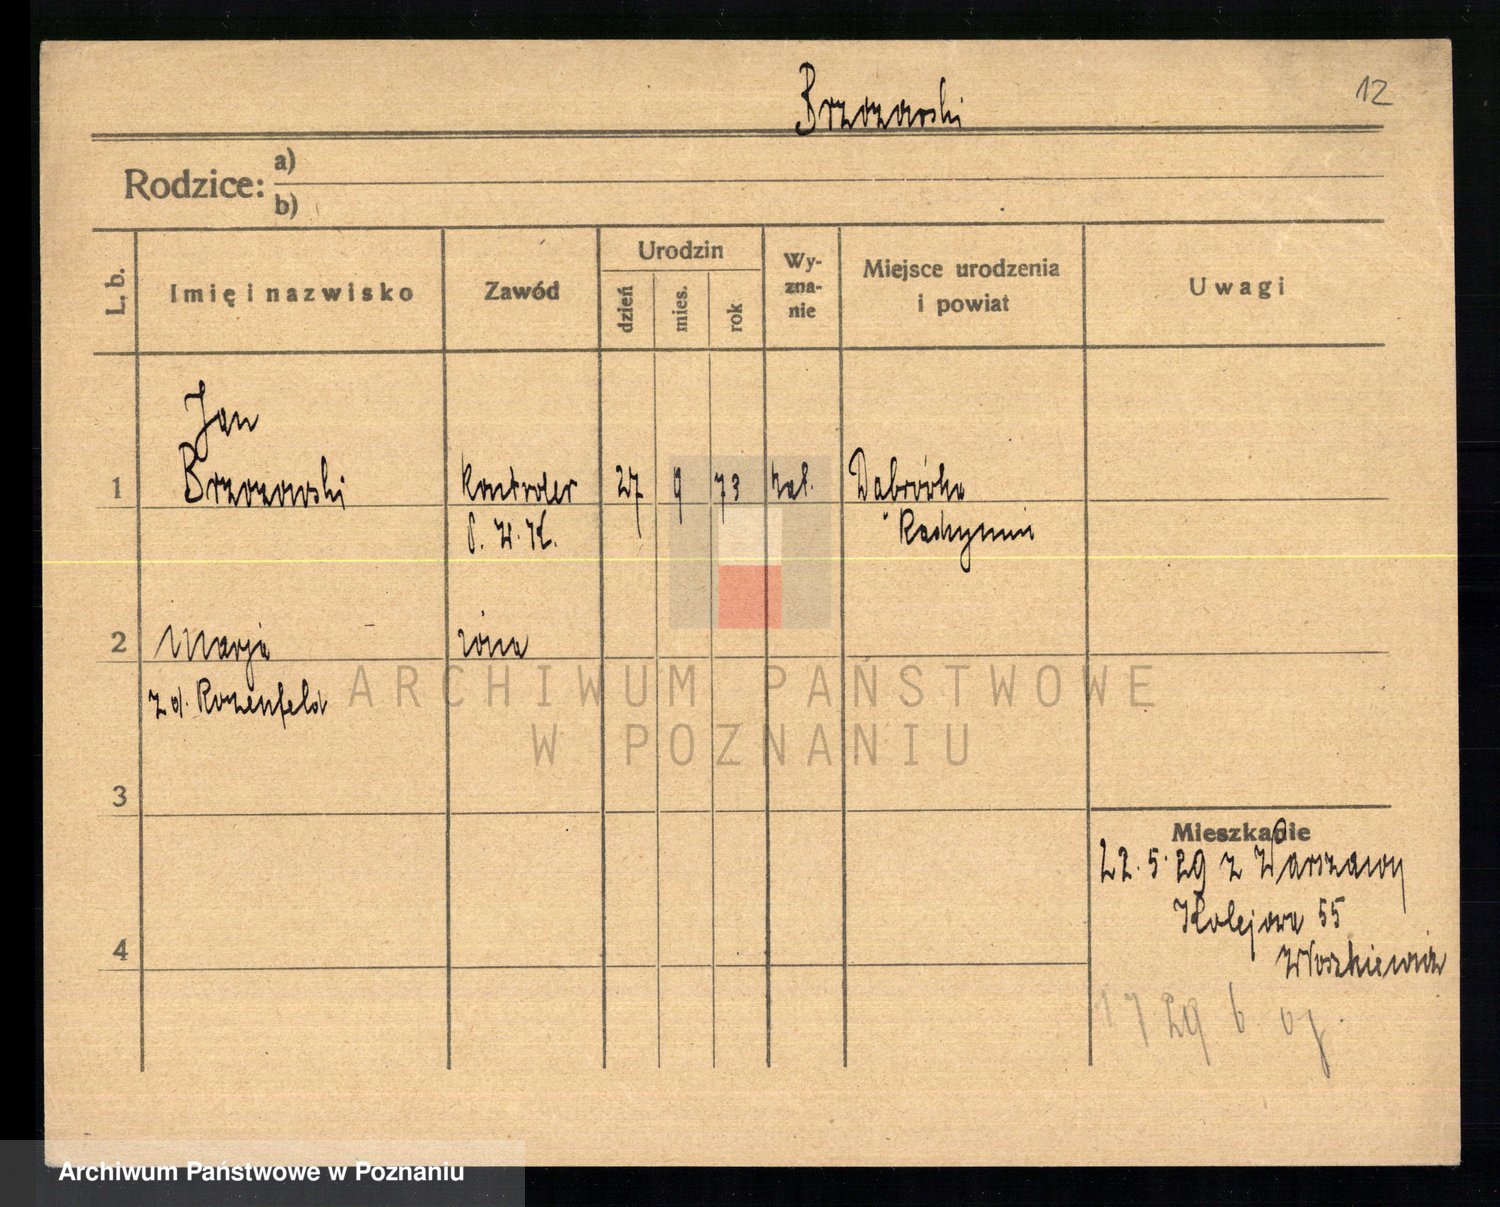 12
Brzozowski
Rodzice: a)
b)
L. b.
Imię i nazwisko
Zawód
Urodzin
dzień
mies.
rok
Wy-
zna-
nie
Miejsce urodzenia
i powiat
Uwagi
Jan
1 Brzozowski kontroler 27 9 73 kat. Dąbrówka
Radzymin
2 Marja żona
z d. Rozenfeld
ARCHIWUM PAŃSTWOWE
W POZNANIU
3
Mieszkanie
22.5.29 z Warszawy
Kolejowa 55
4
Archiwum Państwowe w Poznaniu